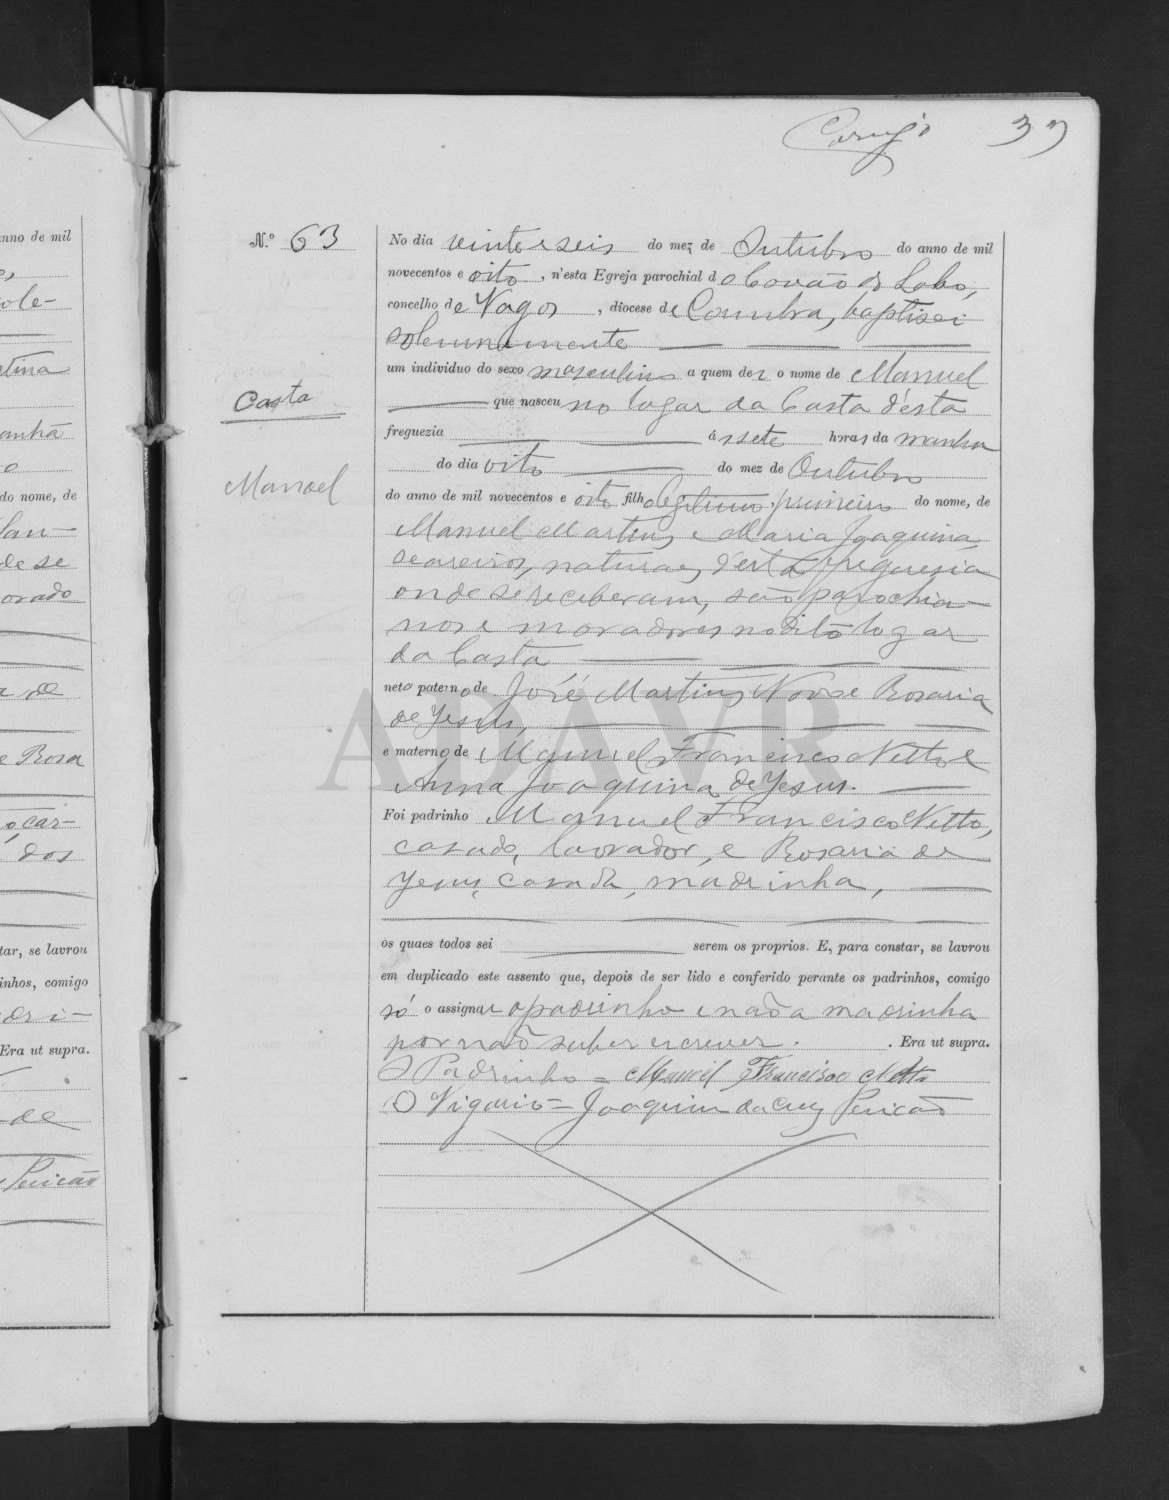 anno de mil
ole-
stina
anhã
o
do nome, de
de se
orado
de
e Rosa
o, car-
dos
tar, se lavrou
inhos, comigo
dri-
Era ut supra.
de
Pericão
37
N.º 63
Casta
Manoel
No dia vinte e seis do mez de Outubro do anno de mil
novecentos e oito, n'esta Egreja parochial do Covão do Lobo,
concelho de Vagos, diocese de Coimbra, baptisei
solemnemente
um individuo do sexo masculino a quem dei o nome de Manuel
que nasceu no logar da Casta d'esta
freguezia ás sete horas da manhã
do dia oito do mez de Outubro
do anno de mil novecentos e oito filho legitimo, primeiro do nome, de
Manuel Martins e Maria Joaquina
seareiros, naturaes d'esta freguesia
onde se receberam, são parochia-
nos e moradores no dito logar
da Casta
neto paterno de José Martins Novo e Rosaria
de Jesus,
e materno de Manuel Francisco Netto e
Anna Joaquina de Jesus.
Foi padrinho Manuel Francisco Netto,
casado, lavrador, e Rosaria de
Jesus, casada, madrinha,
os quaes todos sei serem os proprios. E, para constar, se lavrou
em duplicado este assento que, depois de ser lido e conferido perante os padrinhos, comigo
só o assigna o padrinho e não a madrinha
por não saber escrever. . Era ut supra.
O Padrinho = Manuel Francisco Netto
O Vigario = Joaquim da Cruz Pericão
ADAVR